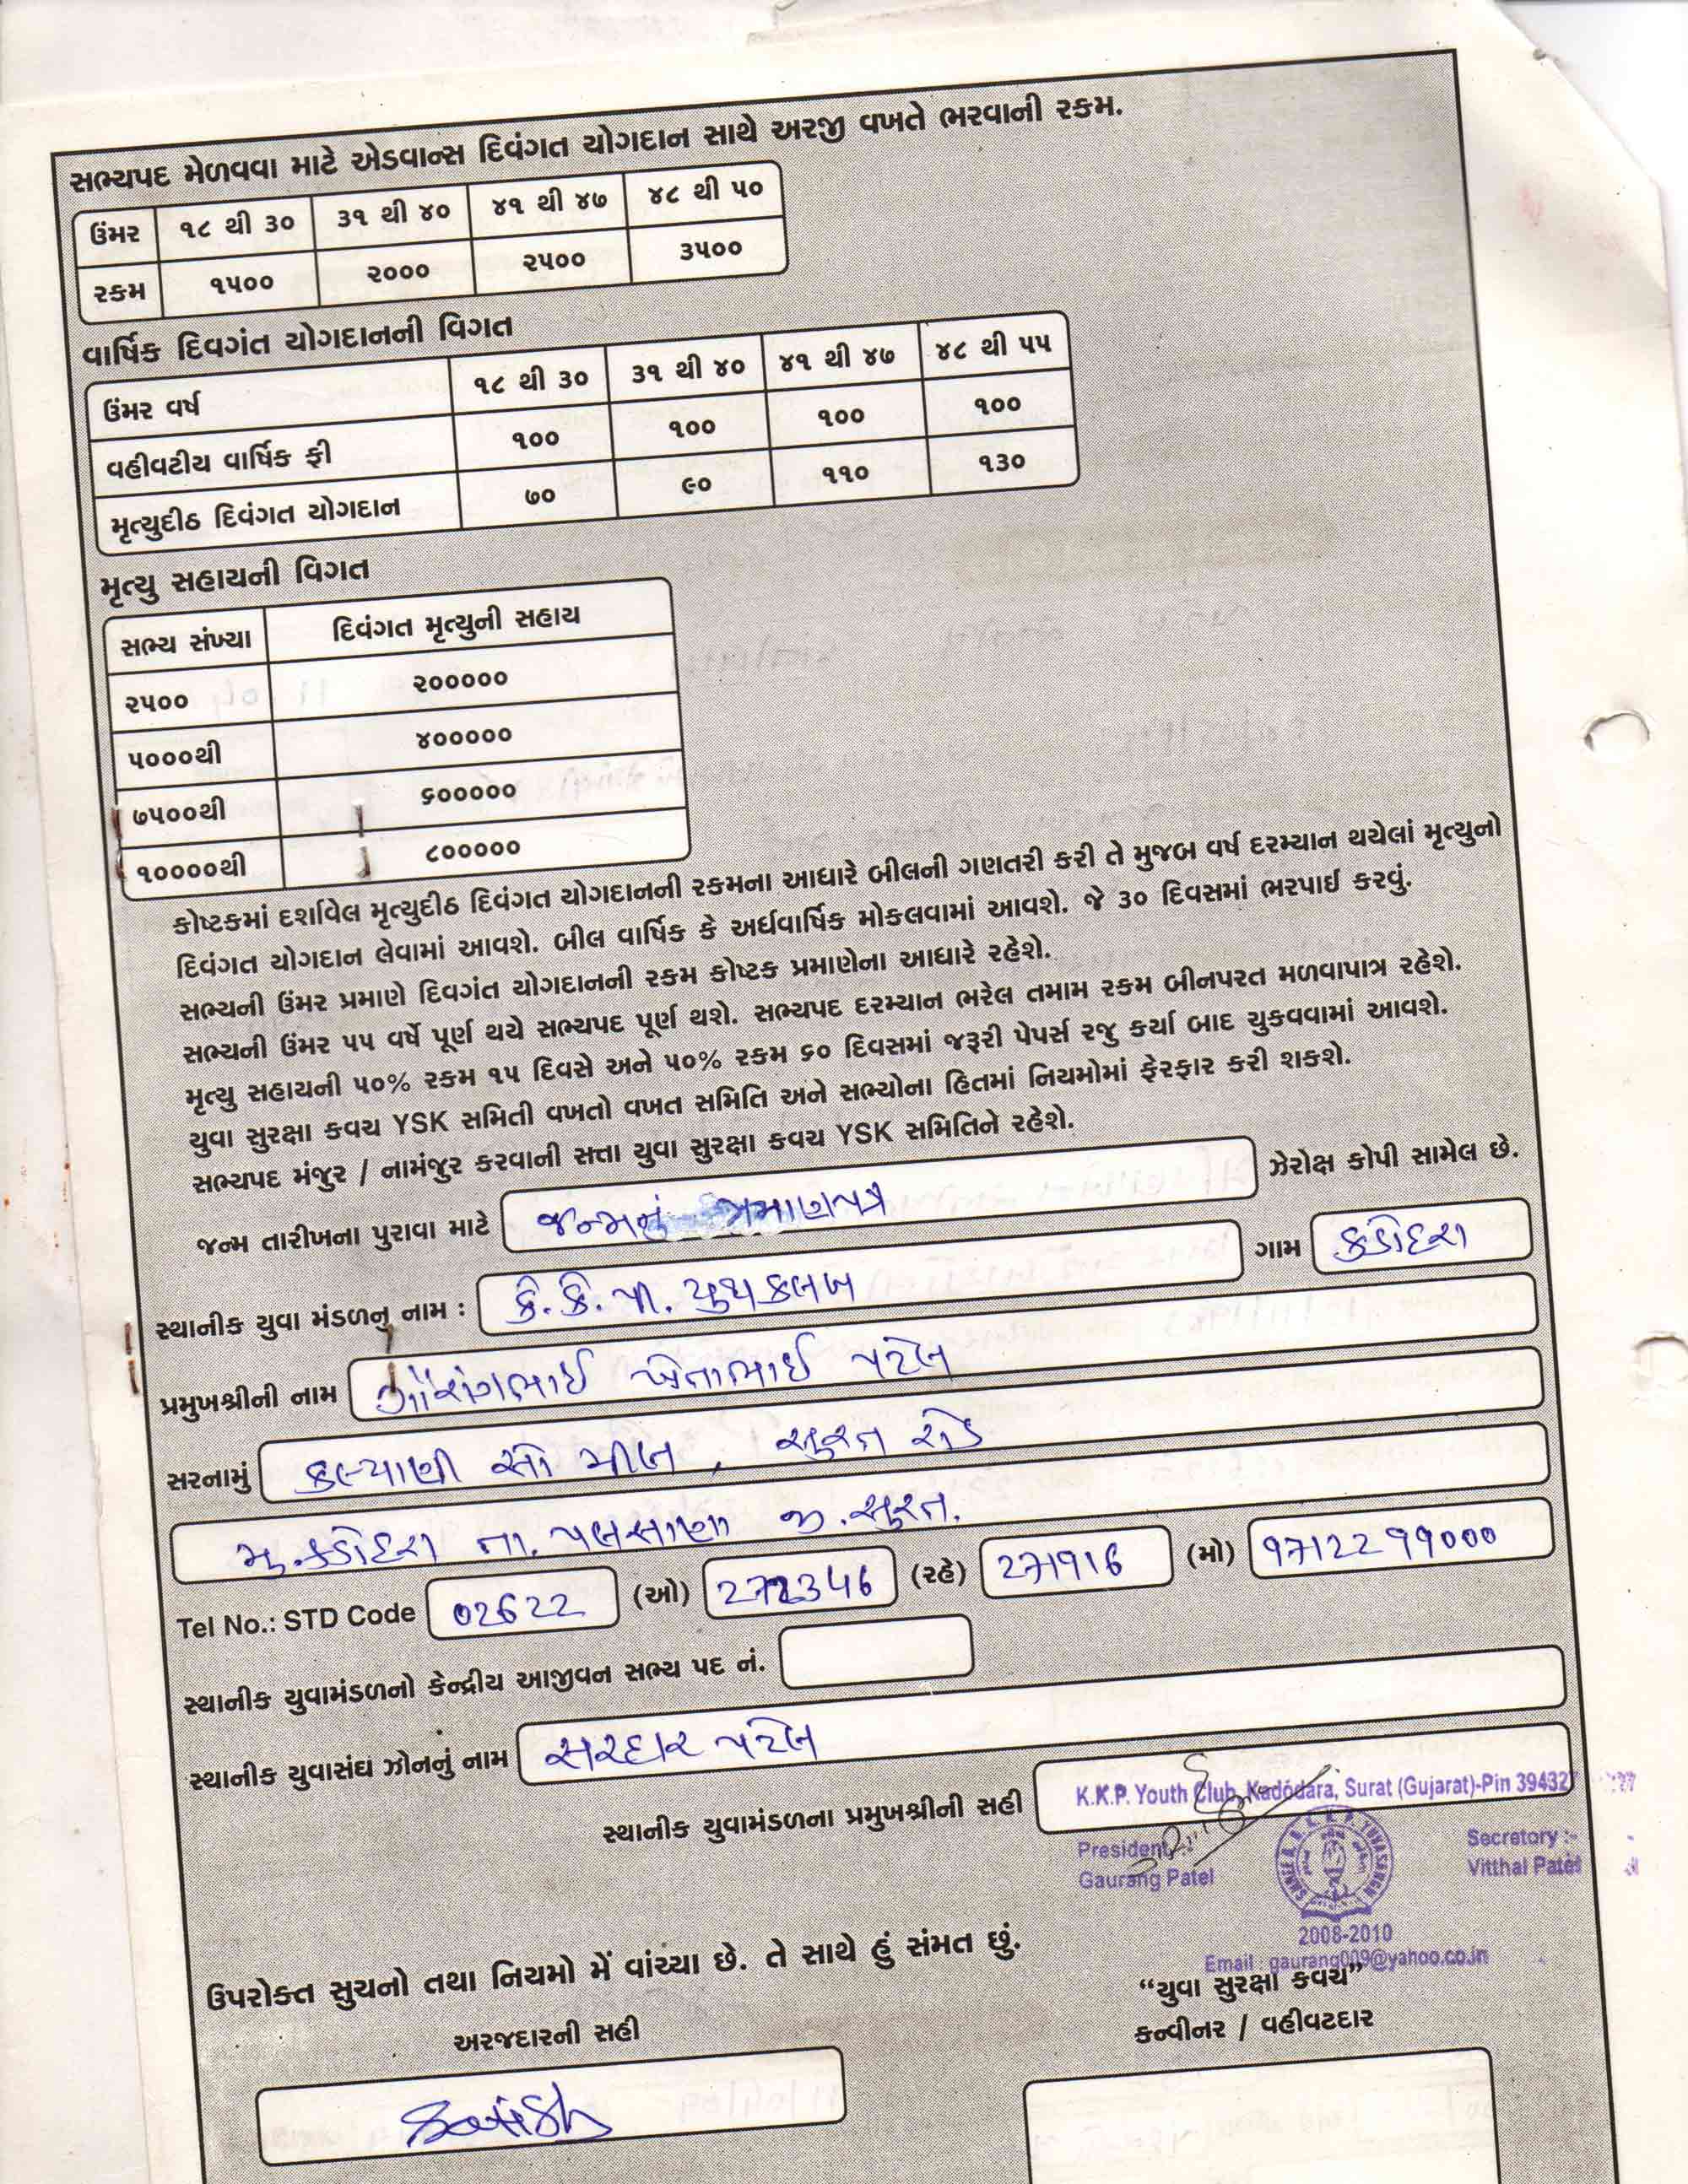 સભ્યપદ મેળવવા માટે એડવાન્સ દિવંગત યોગદાન સાથે અરજી વખતે ભરવાની રકમ.
ઉંમર ૧૮ થી ૩૦ ૩૧ થી ૪૦ ૪૧ થી ૪૭ ૪૮ થી ૫૦
રકમ ૧૫૦૦ ૨૦૦૦ ૨૫૦૦ ૩૫૦૦
વાર્ષિક દિવગંત યોગદાનની વિગત
ઉંમર વર્ષ ૧૮ થી ૩૦ ૩૧ થી ૪૦ ૪૧ થી ૪૭ ૪૮ થી ૫૫
વહીવટીય વાર્ષિક ફી ૧૦૦ ૧૦૦ ૧૦૦ ૧૦૦
મૃત્યુદીઠ દિવંગત યોગદાન ૭૦ ૯૦ ૧૧૦ ૧૩૦
મૃત્યુ સહાયની વિગત
સભ્ય સંખ્યા દિવંગત મૃત્યુની સહાય
૨૫૦૦ ૨૦૦૦૦૦
૫૦૦૦થી ૪૦૦૦૦૦
૭૫૦૦થી ૬૦૦૦૦૦
૧૦૦૦૦થી ૮૦૦૦૦૦
કોષ્ટકમાં દર્શાવેલ મૃત્યુદીઠ દિવંગત યોગદાનની રકમના આધારે બીલની ગણતરી કરી તે મુજબ વર્ષ દરમ્યાન થયેલાં મૃત્યુનો
દિવંગત યોગદાન લેવામાં આવશે. બીલ વાર્ષિક કે અર્ધવાર્ષિક મોકલવામાં આવશે. જે ૩૦ દિવસમાં ભરપાઈ કરવું.
સભ્યની ઉંમર પ્રમાણે દિવગંત યોગદાનની રકમ કોષ્ટક પ્રમાણેના આધારે રહેશે.
સભ્યની ઉંમર ૫૫ વર્ષે પૂર્ણ થયે સભ્યપદ પૂર્ણ થશે. સભ્યપદ દરમ્યાન ભરેલ તમામ રકમ બીનપરત મળવાપાત્ર રહેશે.
મૃત્યુ સહાયની ૫૦% રકમ ૧૫ દિવસે અને ૫૦% રકમ ૬૦ દિવસમાં જરૂરી પેપર્સ રજુ કર્યા બાદ ચુકવવામાં આવશે.
યુવા સુરક્ષા કવચ YSK સમિતી વખતો વખત સમિતિ અને સભ્યોના હિતમાં નિયમોમાં ફેરફાર કરી શકશે.
સભ્યપદ મંજુર / નામંજુર કરવાની સત્તા યુવા સુરક્ષા કવચ YSK સમિતિને રહેશે.
જન્મ તારીખના પુરાવા માટે જન્મનું પ્રમાણપત્ર ઝેરોક્ષ કોપી સામેલ છે.
સ્થાનીક યુવા મંડળનુ નામ : કે. કે. પી. યુથ કલબ ગામ કડોદરા
પ્રમુખશ્રીની નામ ગૌરાંગભાઈ ખેતાભાઈ પટેલ
સરનામું કલ્યાણી સો મીલ, સુરત રોડ
મુ. કડોદરા તા. પલસાણા જી. સુરત.
Tel No.: STD Code 02622 (ઓ) 272346 (રહે) 271916 (મો) 9712299000
સ્થાનીક યુવામંડળનો કેન્દ્રીય આજીવન સભ્ય પદ નં.
સ્થાનીક યુવાસંઘ ઝોનનું નામ સરદાર પટેલ
સ્થાનીક યુવામંડળના પ્રમુખશ્રીની સહી
K.K.P. Youth Club, Kadodara, Surat (Gujarat)-Pin 394327
President :-
Gaurang Patel
Secretory :-
Vitthal Patel
2008-2010
Email : gaurang009@yahoo.co.in
ઉપરોક્ત સુચનો તથા નિયમો મેં વાંચ્યા છે. તે સાથે હું સંમત છું.
“યુવા સુરક્ષા કવચ”
અરજદારની સહી
કન્વીનર / વહીવટદાર
Satish